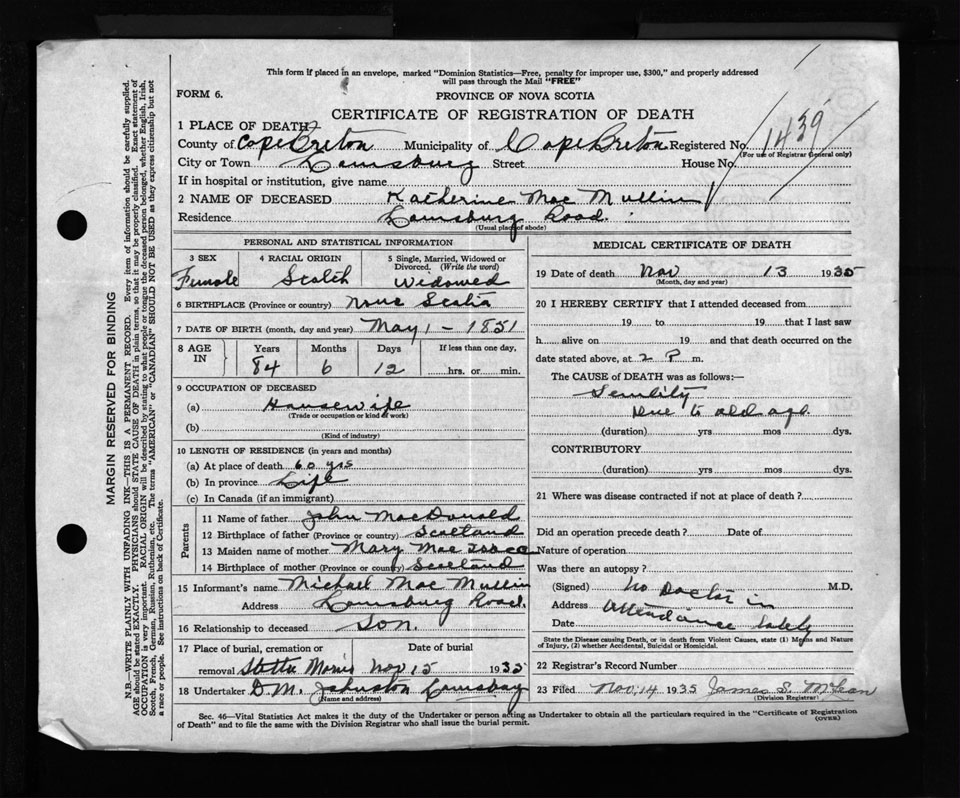 This form if placed in an envelope, marked "Dominion Statistics—Free, penalty for improper use, $300," and properly addressed
will pass through the Mail "FREE"
FORM 6.
PROVINCE OF NOVA SCOTIA
CERTIFICATE OF REGISTRATION OF DEATH
1 PLACE OF DEATH
County of Cape Breton Municipality of Cape Breton Registered No. 1439
(For use of Registrar General only)
City or Town Louisburg Street House No.
If in hospital or institution, give name
2 NAME OF DECEASED Katherine Mac Mullin
Residence Louisburg Road.
(Usual place of abode)
PERSONAL AND STATISTICAL INFORMATION
3 SEX 4 RACIAL ORIGIN 5 Single, Married, Widowed or
Divorced. (Write the word)
Female Scotch Widowed
6 BIRTHPLACE (Province or country) Nova Scotia
7 DATE OF BIRTH (month, day and year) May 1 - 1851
8 AGE IN Years Months Days If less than one day,
84 6 12 hrs. or min.
9 OCCUPATION OF DECEASED
(a) Housewife
(Trade or occupation or kind of work)
(b)
(Kind of industry)
10 LENGTH OF RESIDENCE (in years and months)
(a) At place of death 60 yrs
(b) In province Life
(c) In Canada (if an immigrant)
Parents
11 Name of father John MacDonald
12 Birthplace of father (Province or country) Scotland
13 Maiden name of mother Mary Mac Isaac
14 Birthplace of mother (Province or country) Scotland
15 Informant's name Michael Mac Mullin
Address Louisburg Road.
16 Relationship to deceased Son.
17 Place of burial, cremation or Date of burial
removal Nov 15 1935
18 Undertaker D.M. Johnston Louisburg
(Name and address)
MEDICAL CERTIFICATE OF DEATH
19 Date of death Nov 13 1935
(Month, day and year)
20 I HEREBY CERTIFY that I attended deceased from
19 to 19 that I last saw
h alive on 19 and that death occurred on the
date stated above, at 2 P. m.
The CAUSE of DEATH was as follows:—
Senility
Due to old age.
(duration) yrs mos dys.
CONTRIBUTORY
(duration) yrs mos dys.
21 Where was disease contracted if not at place of death?
Did an operation precede death? Date of
Nature of operation
Was there an autopsy?
(Signed) No Doctor in M.D.
Address Attendance
Date Lately
State the Disease causing Death, or in death from Violent Causes, state (1) Means and Nature
of Injury, (2) whether Accidental, Suicidal or Homicidal.
22 Registrar's Record Number
23 Filed Nov. 14 1935 James S. McLean
(Division Registrar)
Sec. 46—Vital Statistics Act makes it the duty of the Undertaker or person acting as Undertaker to obtain all the particulars required in the "Certificate of Registration
of Death" and to file the same with the Division Registrar who shall issue the burial permit.
(OVER)
MARGIN RESERVED FOR BINDING
N.B.—WRITE PLAINLY WITH UNFADING INK—THIS IS A PERMANENT RECORD. Every item of information should be carefully supplied.
AGE should be stated EXACTLY. PHYSICIANS should STATE CAUSE OF DEATH in plain terms, so that it may be properly classified. Exact statement of
OCCUPATION is very important. RACIAL ORIGIN will be described by stating to what people or tongue the deceased person belonged, whether English, Irish,
Scotch, French, German, Russian, Ruthenian, etc. The terms "AMERICAN" or "CANADIAN" SHOULD NOT BE USED as they express citizenship but not
a race or people. See instructions on back of Certificate.